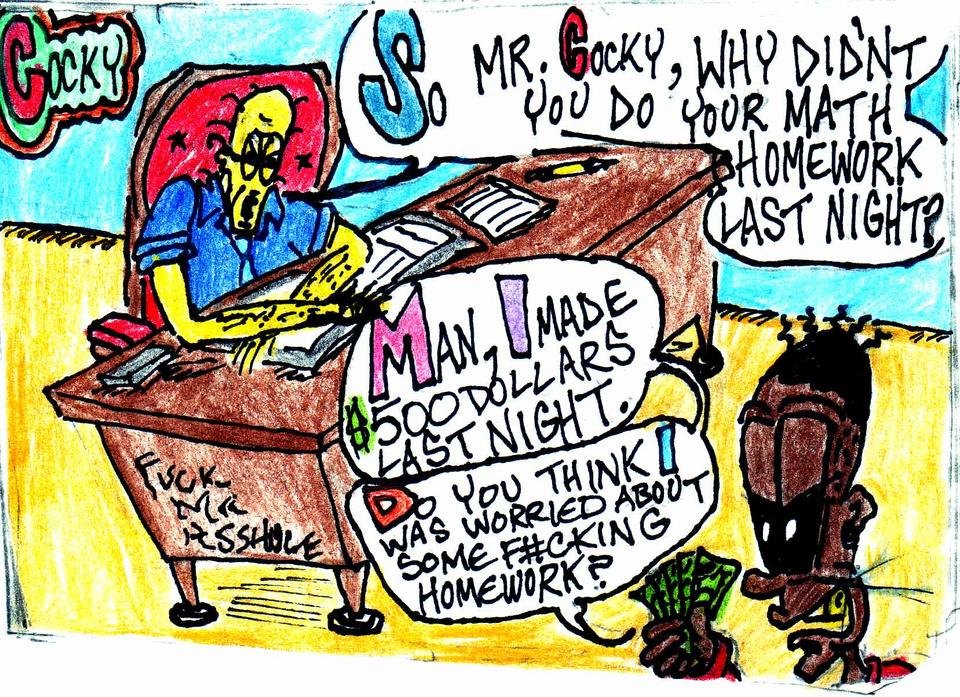 COCKY
SO MR. COCKY, WHY DID'NT
YOU DO YOUR MATH
HOMEWORK
LAST NIGHT?
MAN, I MADE
$500 DOLLARS
LAST NIGHT.
DO YOU THINK I
WAS WORRIED ABOUT
SOME F#CKING
HOMEWORK?
FUCK
MR
ASSHOLE